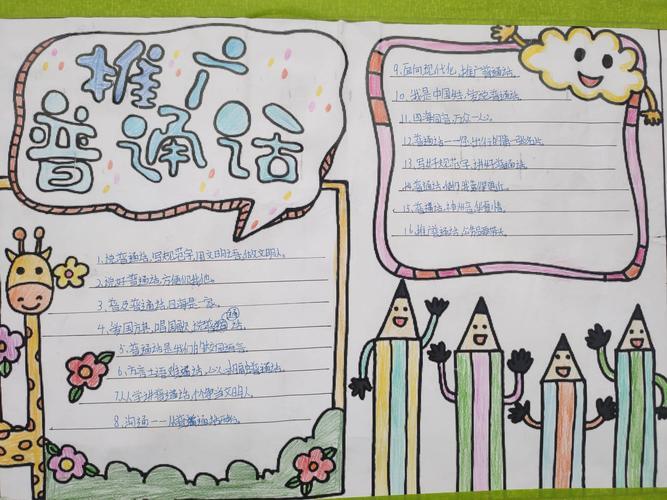 推广
普通话
1.说普通话,写规范字,用文明语,做文明人。
2.说好普通话,方便你我他。
3.普及普通话,四海是一家。
4.爱国旗,唱国歌,说普通话。
5.普通话是我们的校园语言。
6.方言土语难沟通,心心相印普通话。
7.人人学讲普通话,个个争当文明人。
8.沟通——从普通话开始。
9.面向现代化,推广普通话。
10.我是中国娃,爱说普通话。
11.四海同音,万众一心。
12.普通话——你我的第一张名片。
13.写好规范字,讲好普通话。
14.普通话,使你我靠得更近。
15.普通话,神州音,华夏情。
16.推广普通话,